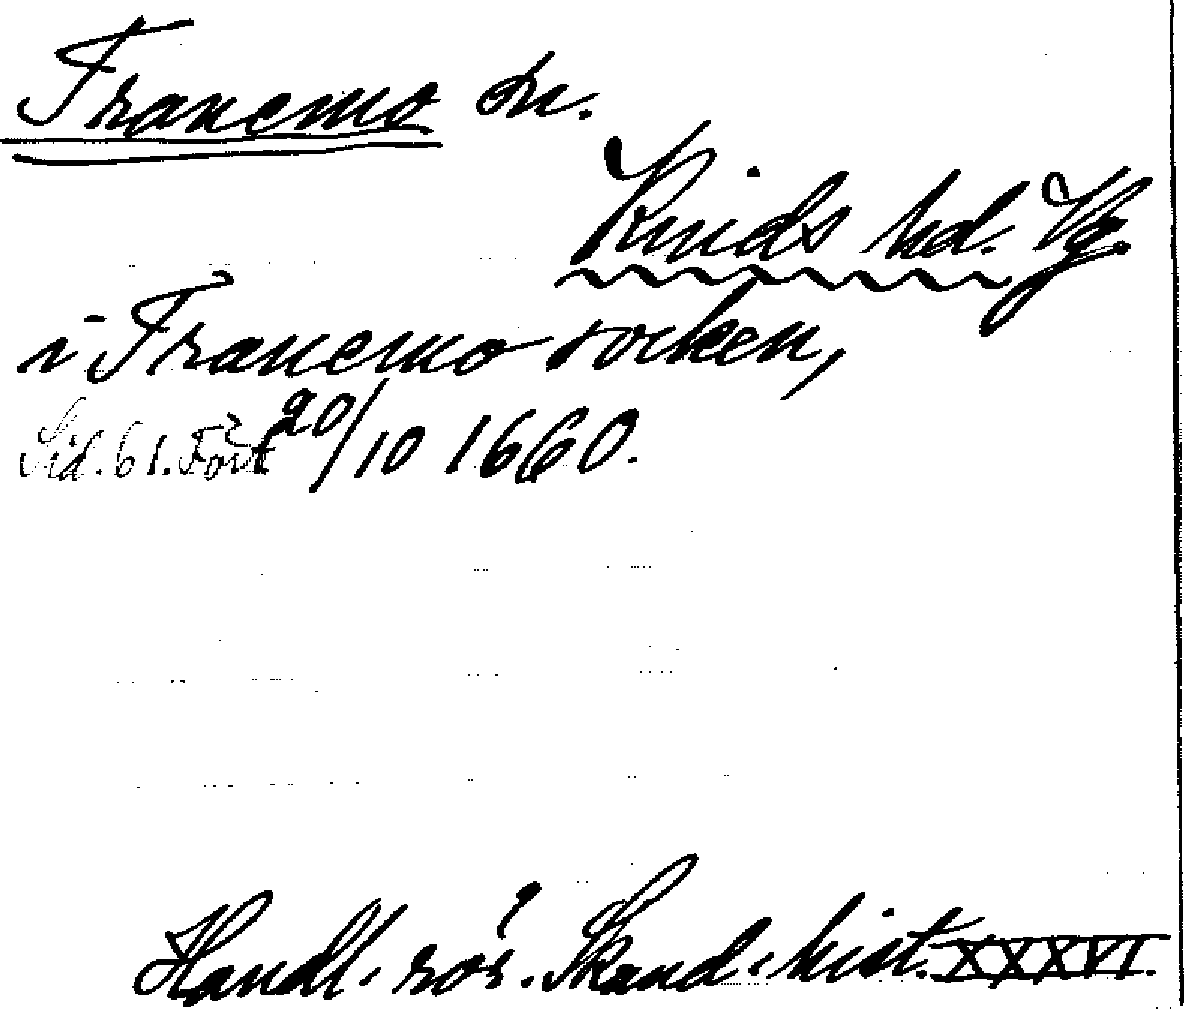 Tranemo sn.
Kinds hd. Vg.
i Tranemo socken,
Sid. 61. Fört 20/10 1660.
Handl. rör. Skand. hist. XXXVI.